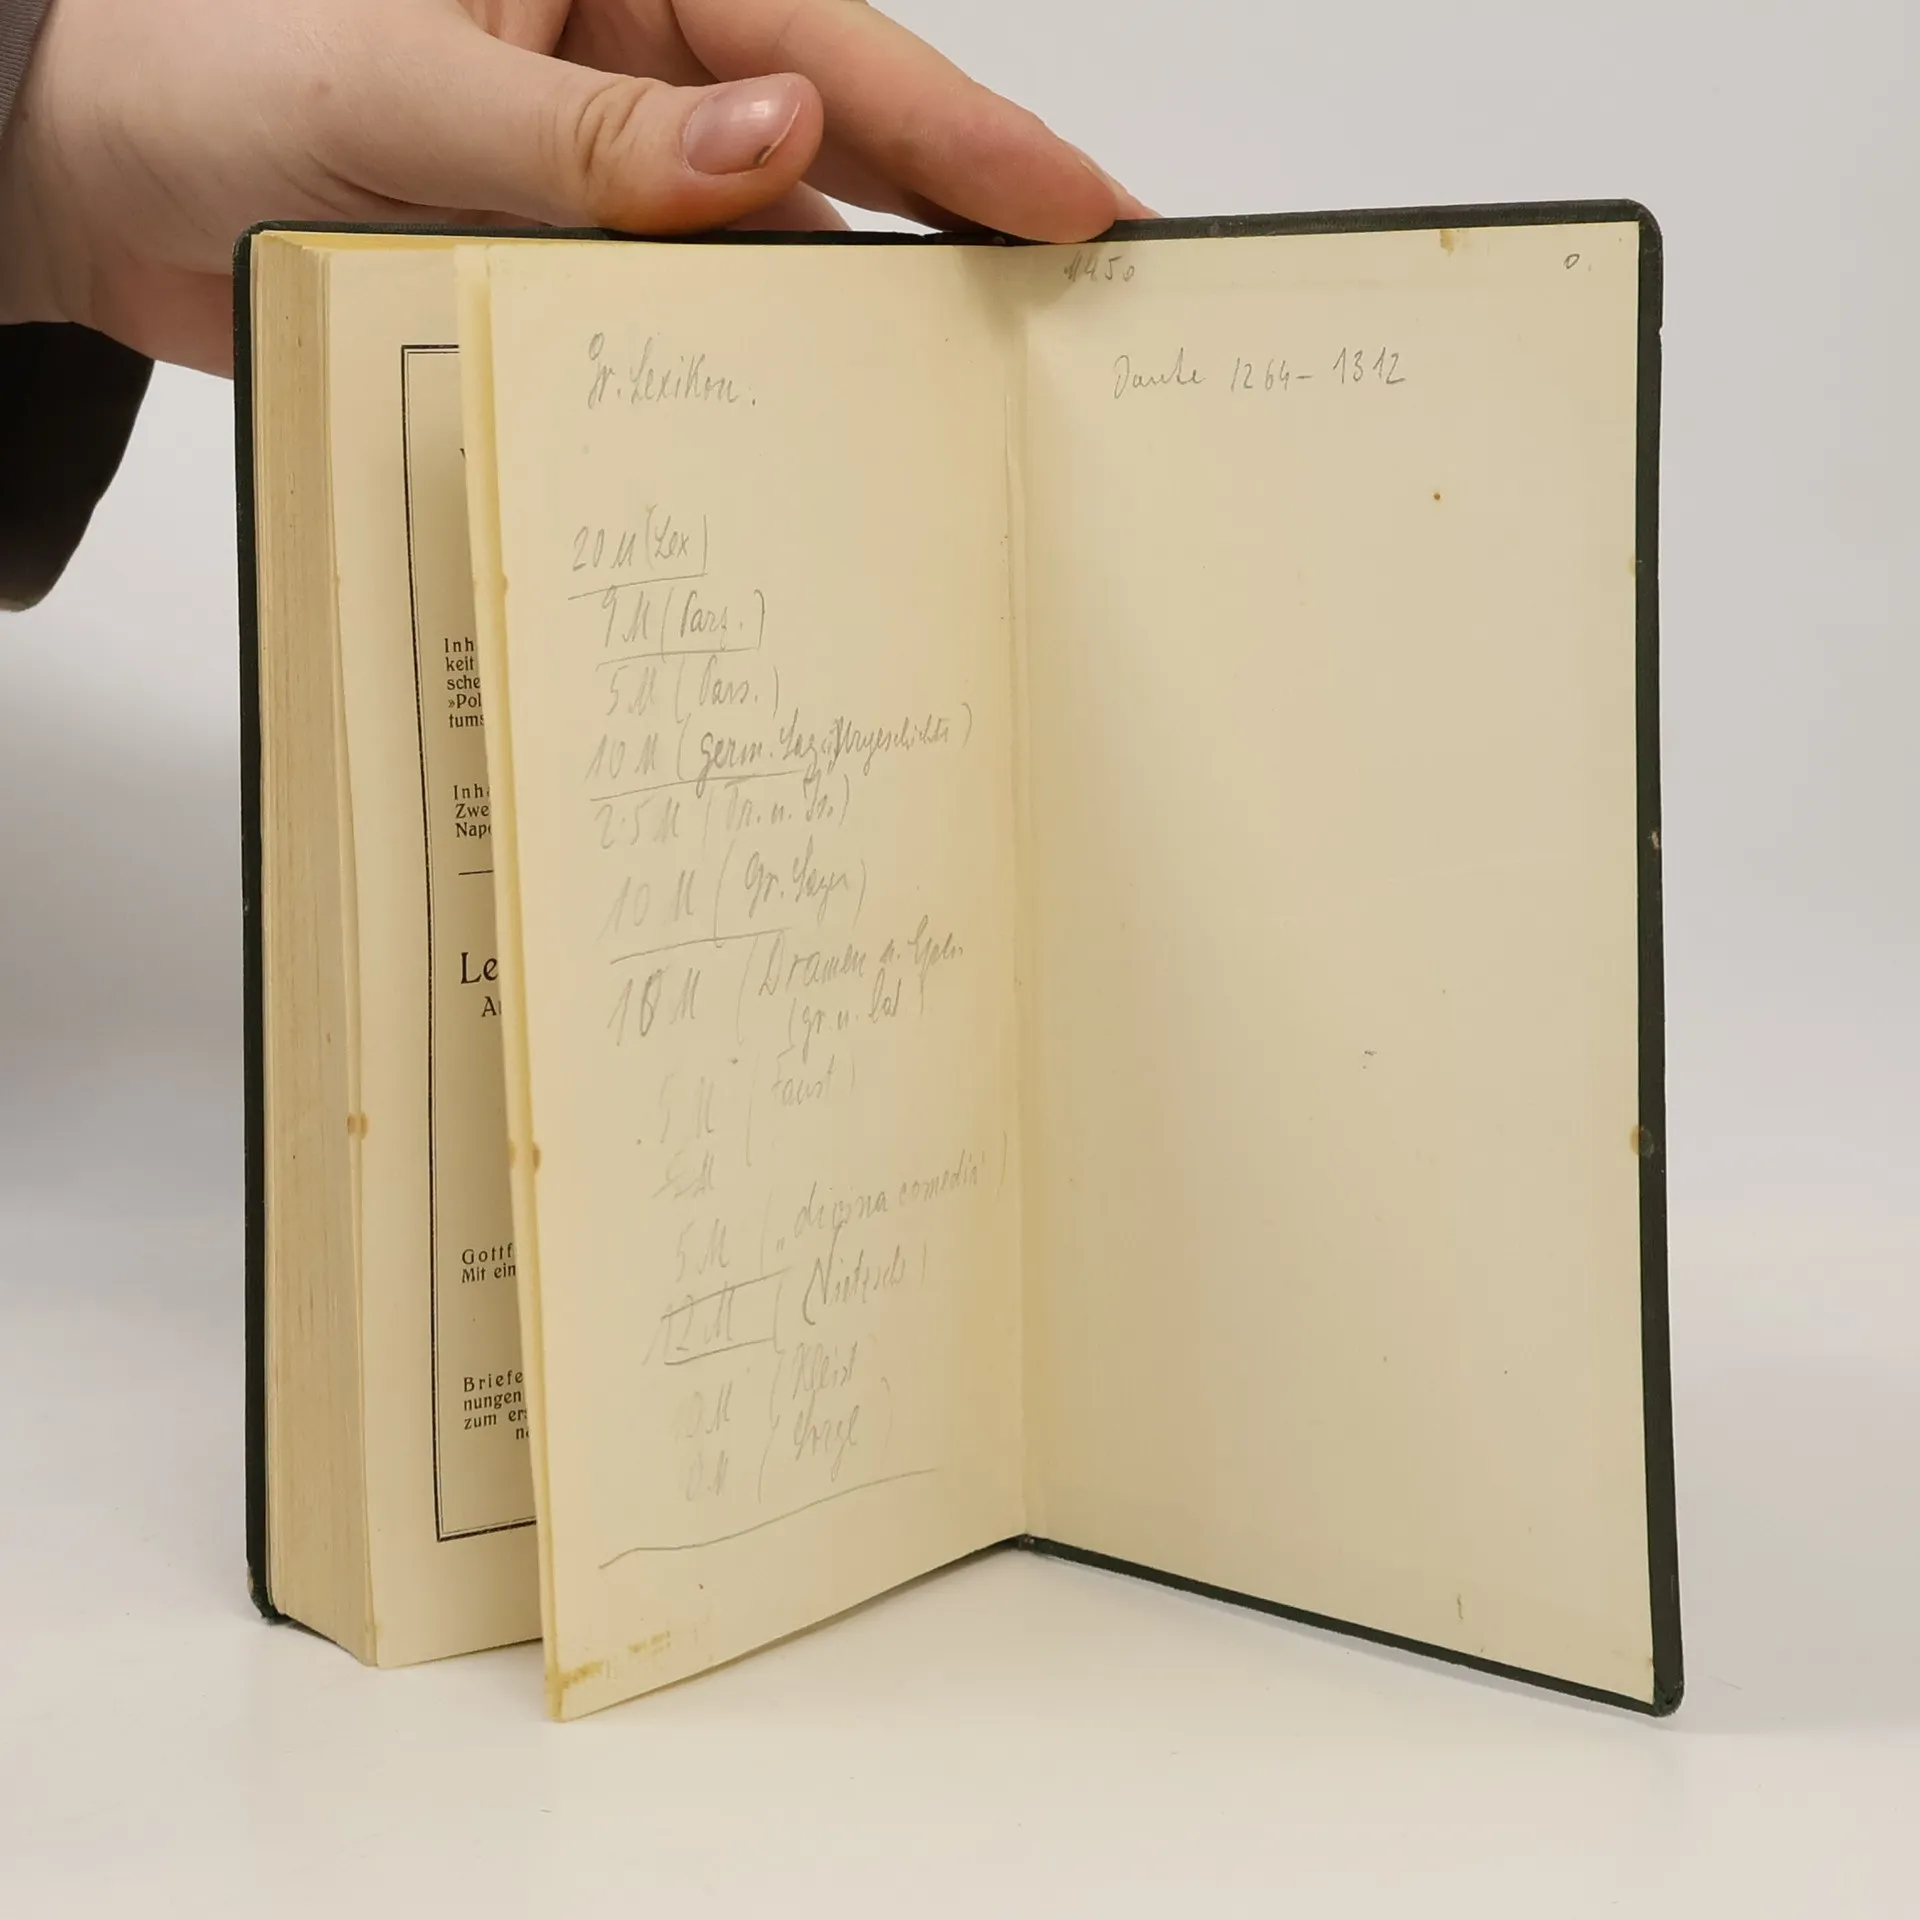 Inh
keit
sche
»Pol
tums
Inh
Zwe
Nap
Le
A
Gottf
Mit ein
Briefe
nungen
zum er
n
Gr. Lexikon.
20 M (Lex)
9 M (Parz.)
5 M (Pars.)
10 M (germ. Sag Urgeschichte)
2·5 M (Tr. u. Is.)
10 M (Gr. Sagen)
10 M (Dramen u.
(gr. u. lat)
5 M (Faust)
5 M
5 M („divina comedia“)
12 M (Nietzsch)
10 M (Kleist
M (Sorge)
1450
0.
Dante 1264–1312